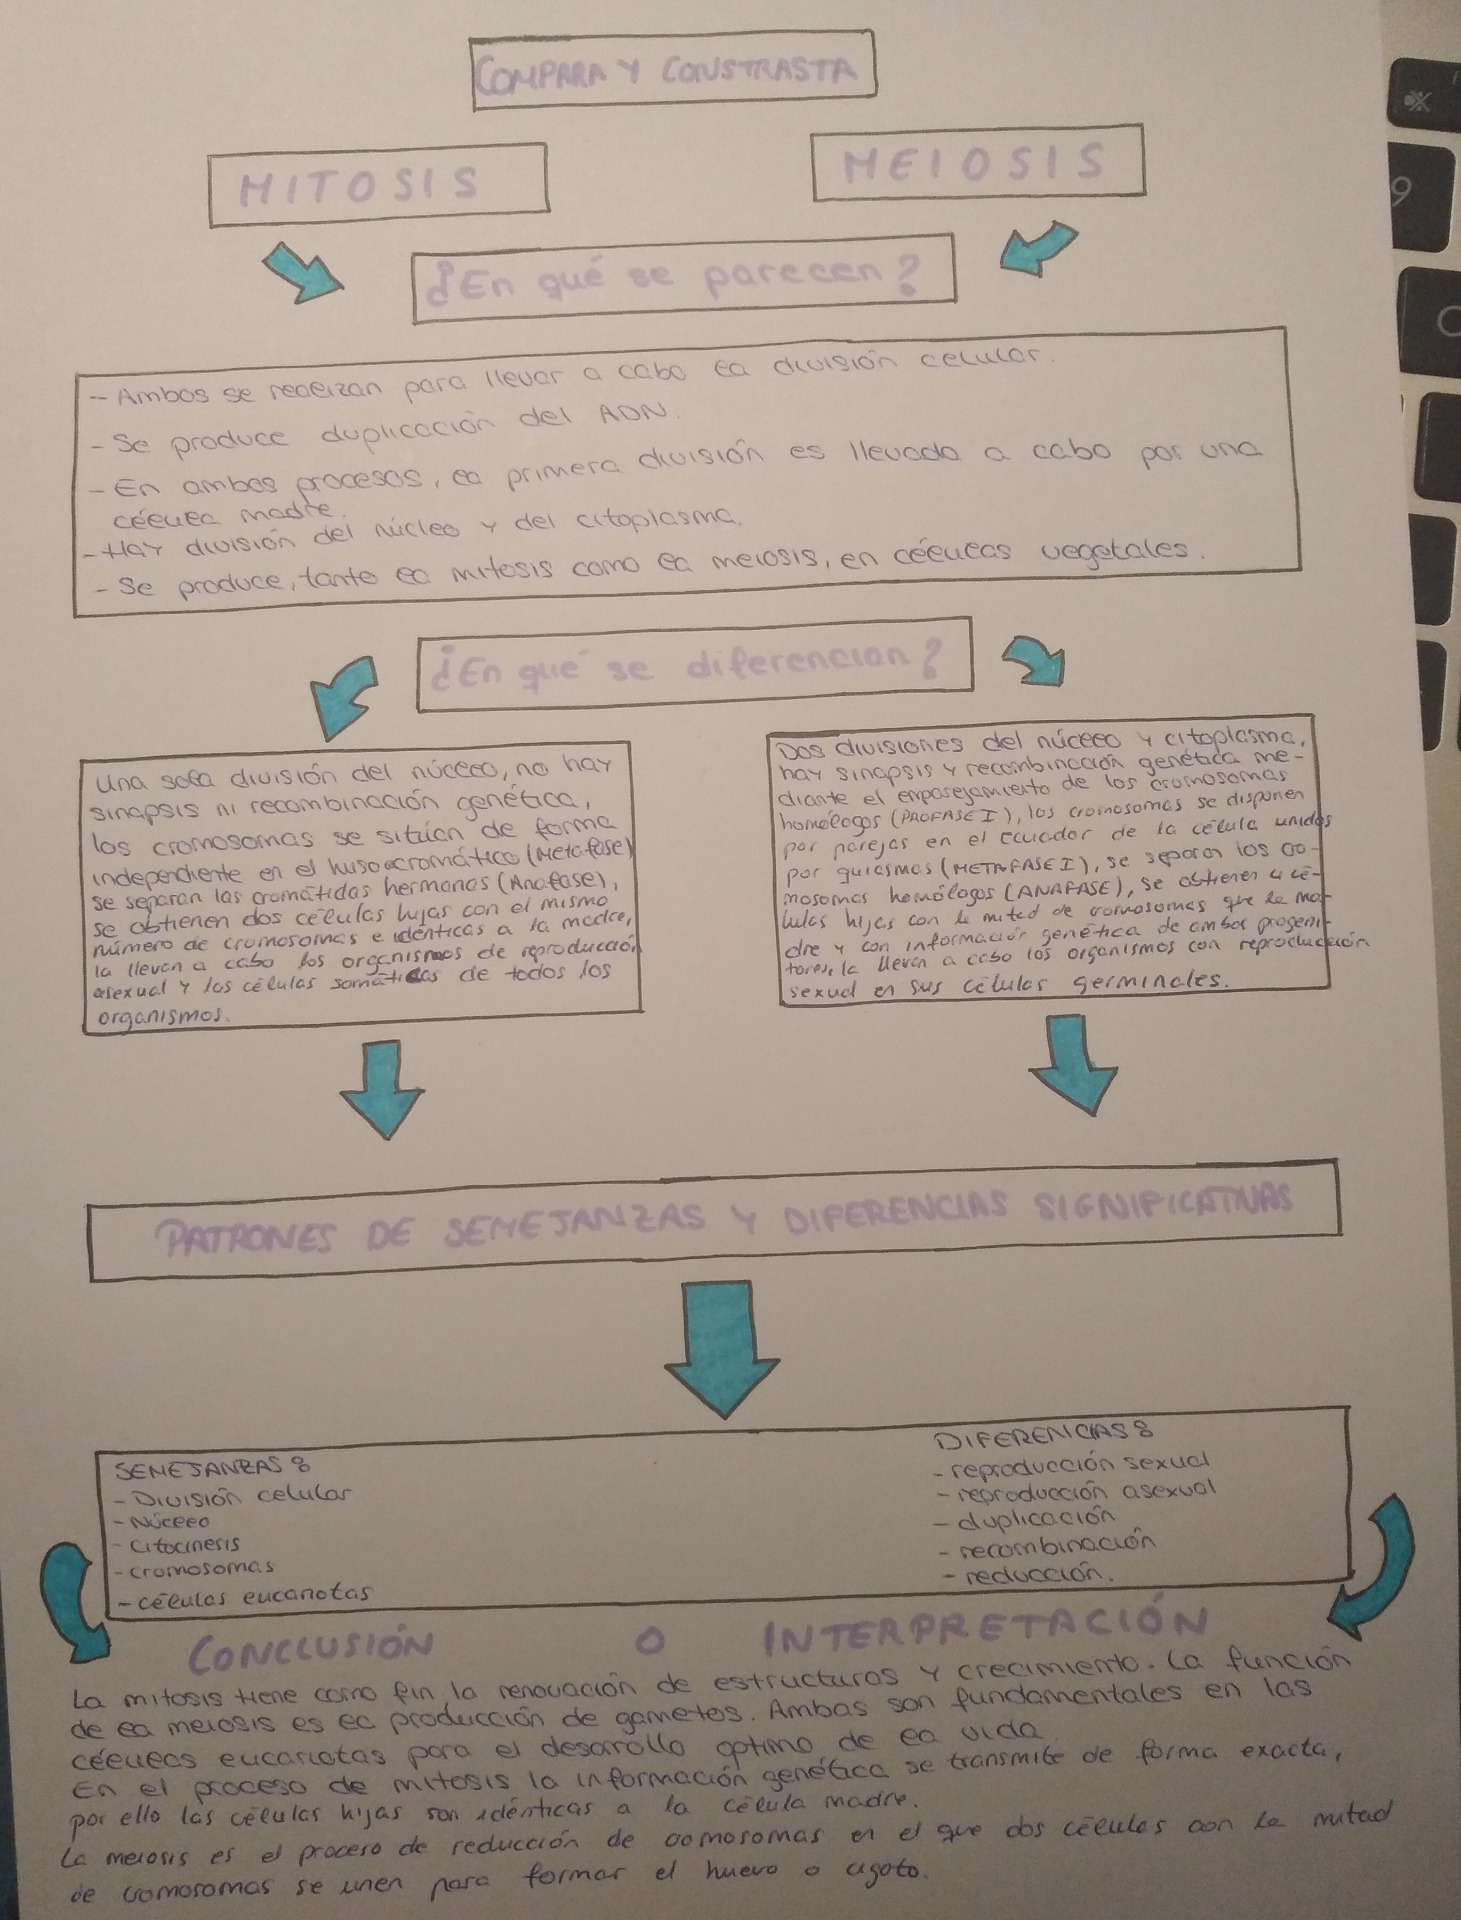 COMPARA Y CONSTRASTA
MITOSIS
MEIOSIS
¿En qué se parecen?
- Ambos se realizan para llevar a cabo la división celular.
- Se produce duplicación del ADN.
- En ambos procesos, la primera división es llevada a cabo por una
célula madre.
- Hay división del núcleo y del citoplasma.
- Se produce, tanto la mitosis como la meiosis, en células vegetales.
¿En qué se diferencian?
Una sola división del núcleo, no hay
sinapsis ni recombinación genética,
los cromosomas se sitúan de forma
independiente en el huso acromático (Metafase)
se separan las cromátidas hermanas (Anafase),
se obtienen dos células hijas con el mismo
número de cromosomas e idénticas a la madre,
la llevan a cabo los organismos de reproducción
asexual y las células somáticas de todos los
organismos.
Dos divisiones del núcleo y citoplasma,
hay sinapsis y recombinación genética me-
diante el emparejamiento de los cromosomas
homólogos (PROFASE I), los cromosomas se disponen
por parejas en el ecuador de la célula unidos
por quiasmas (METAFASE I), se separan los cro-
mosomas homólogos (ANAFASE), se obtienen 4 cé-
lulas hijas con la mitad de cromosomas que la ma-
dre y con información genética de ambos progeni-
tores, la llevan a cabo los organismos con reproducción
sexual en sus células germinales.
PATRONES DE SEMEJANZAS Y DIFERENCIAS SIGNIFICATIVAS
SEMEJANZAS:
- División celular
- Núcleo
- Citocinesis
- cromosomas
- células eucariotas
DIFERENCIAS:
- reproducción sexual
- reproducción asexual
- duplicación
- recombinación
- reducción.
CONCLUSIÓN O INTERPRETACIÓN
La mitosis tiene como fin la renovación de estructuras y crecimiento. La función
de la meiosis es la producción de gametos. Ambas son fundamentales en las
células eucariotas para el desarrollo optimo de la vida
En el proceso de mitosis la información genética se transmite de forma exacta,
por ello las células hijas son idénticas a la célula madre.
La meiosis es el proceso de reducción de cromosomas en el que dos células con la mitad
de cromosomas se unen para formar el huevo o cigoto.
9